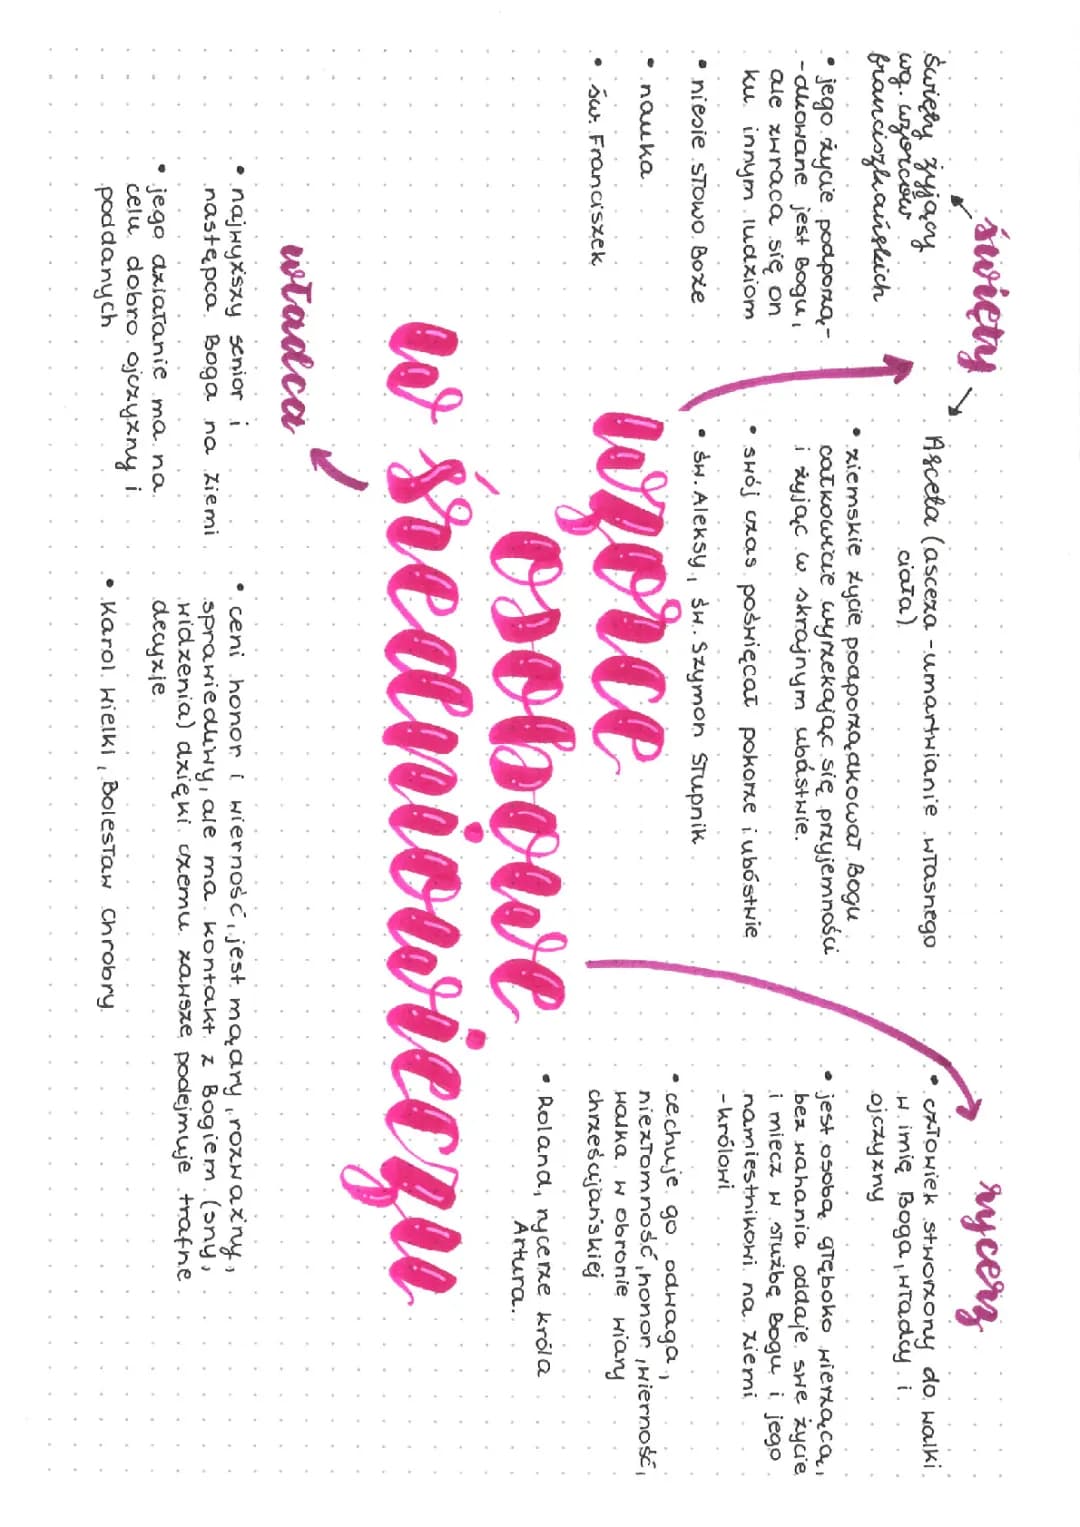 wzorce
osobowe
w średniowieczu
święty
święty żyjący
wg. wzorców
franciszkańskich
• jego życie podporzą-
-dkowane jest Bogu,
ale zwraca się on
ku innym ludziom
• niesie słowo Boże
• nauka
• św. Franciszek
Asceta (asceza - umartwianie własnego
ciała)
• ziemskie życie podporządkował Bogu
całkowicie wyrzekając się przyjemności
i żyjąc w skrajnym ubóstwie.
• swój czas poświęcał pokorze i ubóstwie
• św. Aleksy, św. Szymon Słupnik
rycerz
• człowiek stworzony do walki
w imię Boga, władcy i
ojczyzny
• jest osobą głęboko wierzącą,
bez wahania oddaje swe życie
i miecz w służbę Bogu i jego
namiestnikowi na ziemi
-królowi
• cechuje go odwaga,
niezłomność, honor, wierność,
walka w obronie wiary
chrześcijańskiej
• Roland, rycerze króla
Artura.
władca
• najwyższy senior i
następca Boga na ziemi
• jego działanie ma na
celu dobro ojczyzny i
poddanych
• ceni honor i wierność, jest mądry, rozważny,
sprawiedliwy, ale ma kontakt z Bogiem (sny,
widzenia) dzięki czemu zawsze podejmuje trafne
decyzje
• Karol Wielki, Bolesław Chrobry